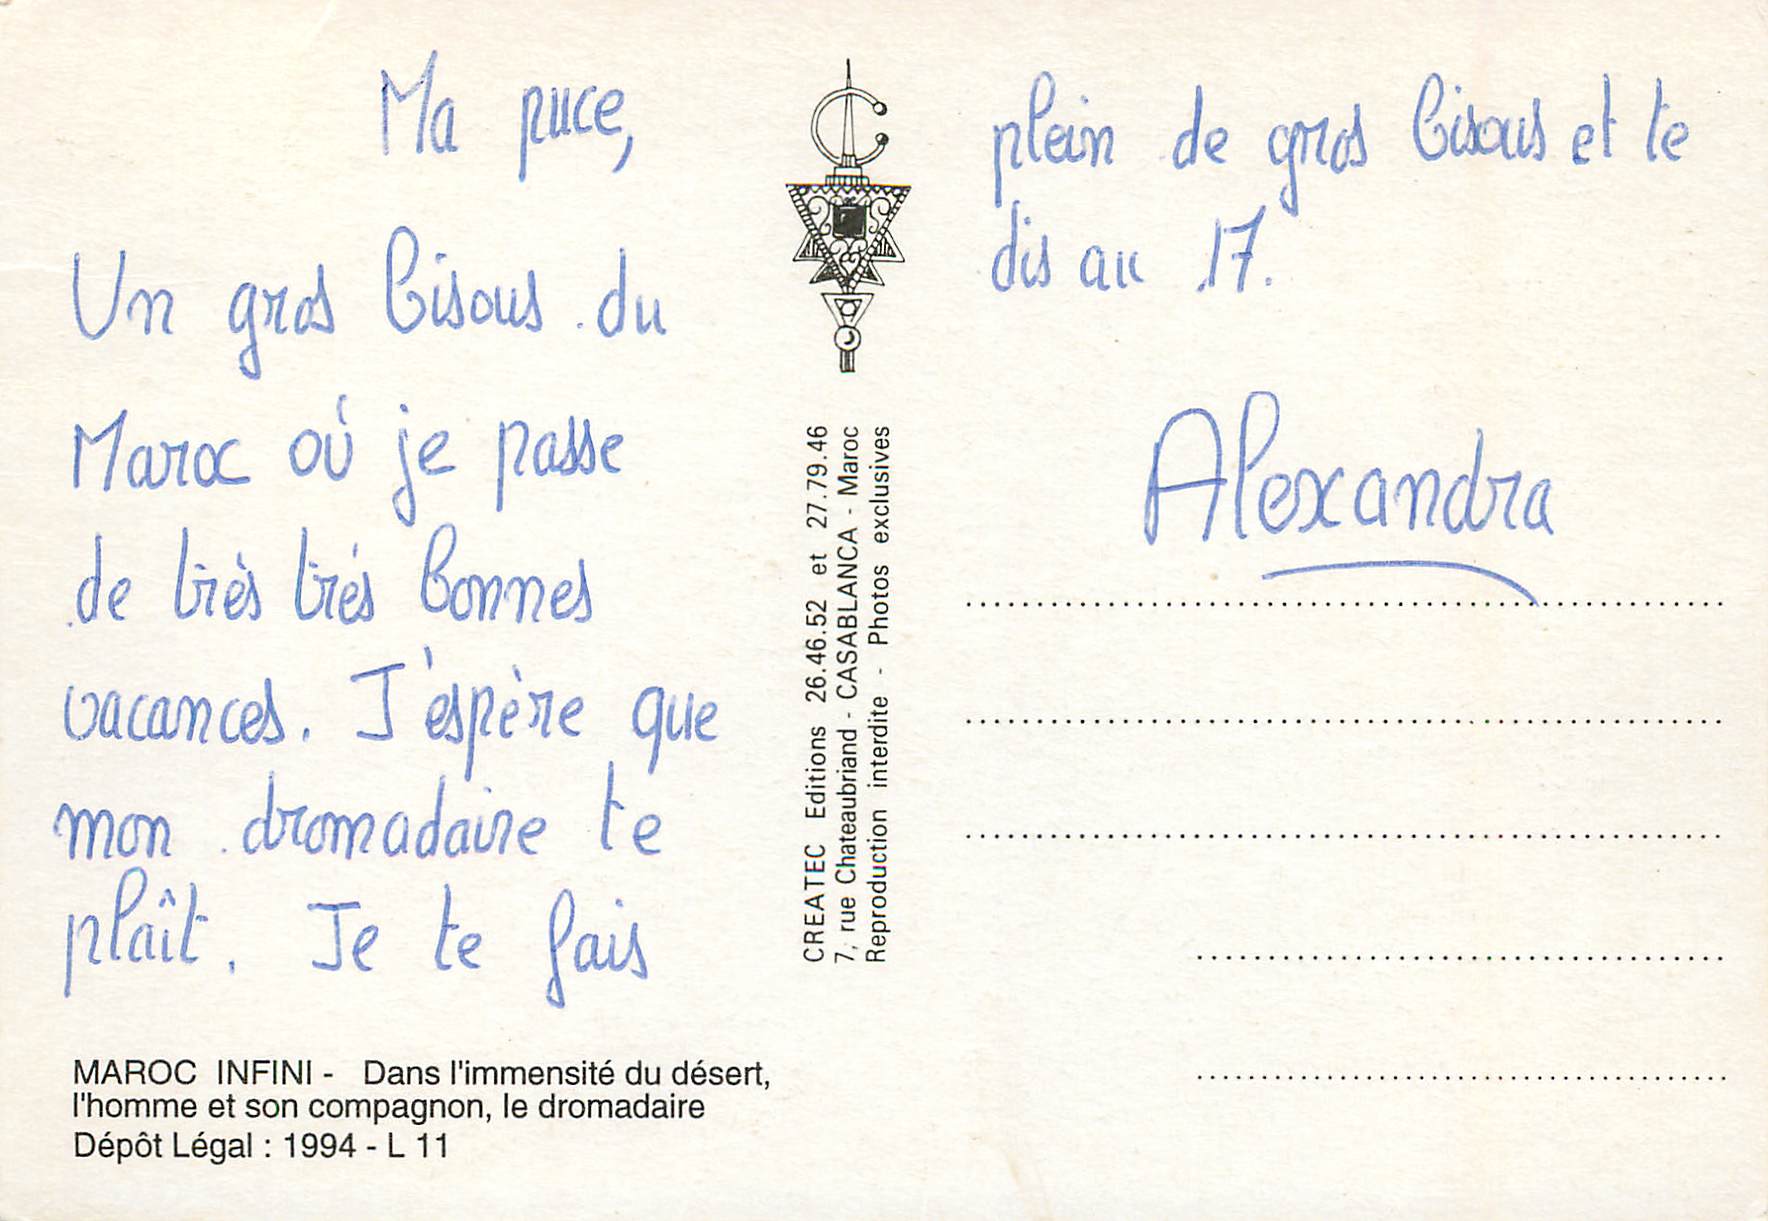 Ma puce,
Un gros bisous du
Maroc où je passe
de très trés bonnes
vacances. J'espère que
mon dromadaire te
plaît. Je te fais
plein de gros bisous et te
dis au 17.
Alexandra
CREATEC Editions 26.46.52 et 27.79.46
7, rue Chateaubriand - CASABLANCA - Maroc
Reproduction interdite - Photos exclusives
MAROC INFINI - Dans l'immensité du désert,
l'homme et son compagnon, le dromadaire
Dépôt Légal : 1994 - L 11